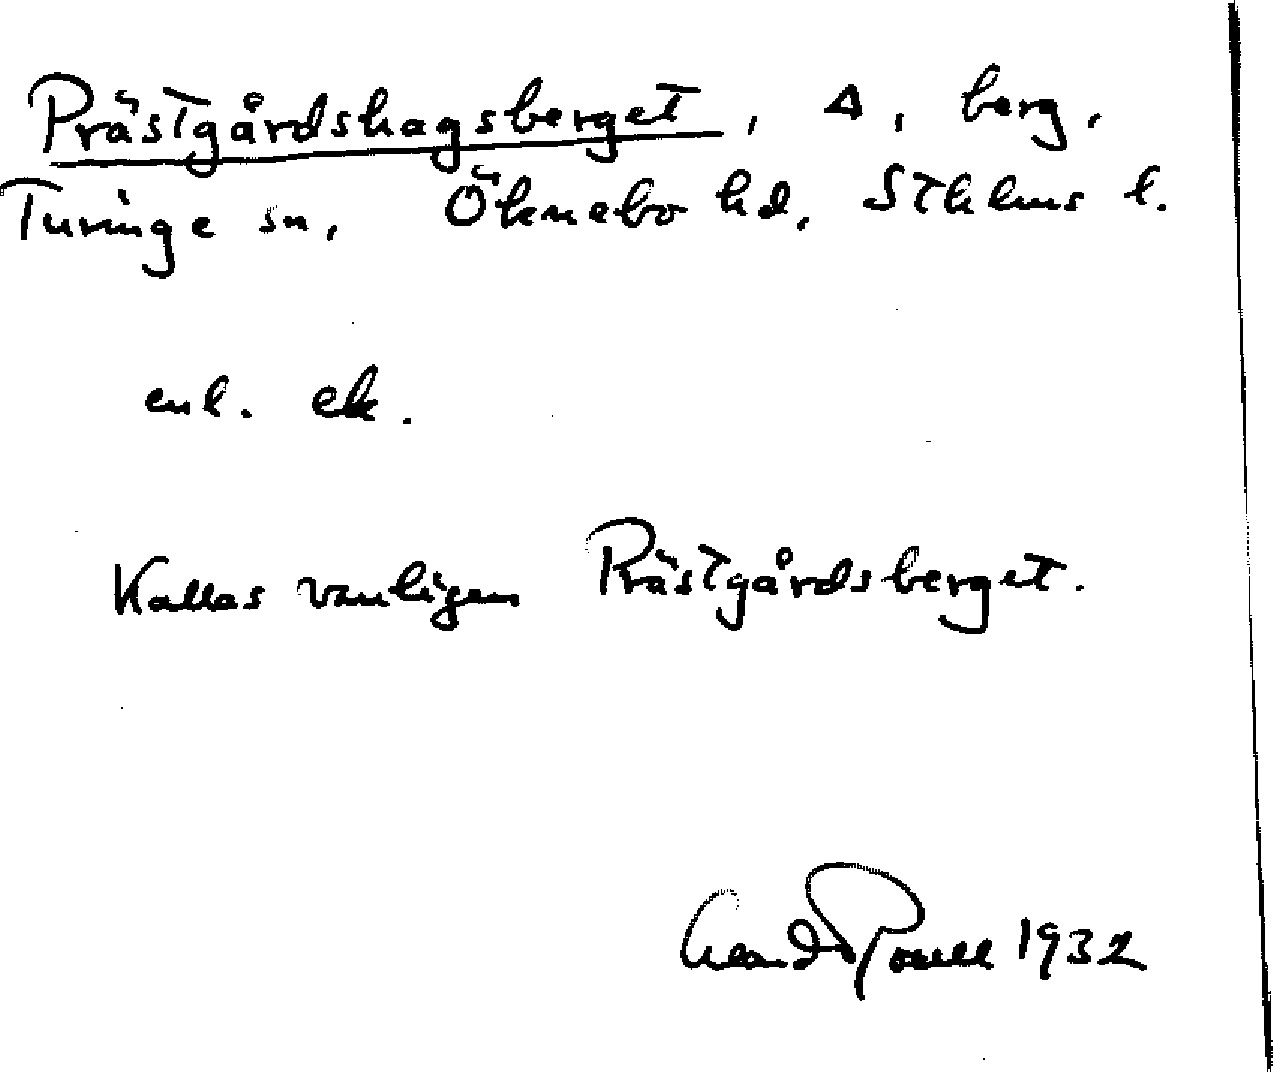 Prästgårdshagsberget, Δ, berg,
Turinge sn, Öknebo hd, Sthlms l.
enl. ek.
Kallas vanligen Prästgårdsberget.
1932